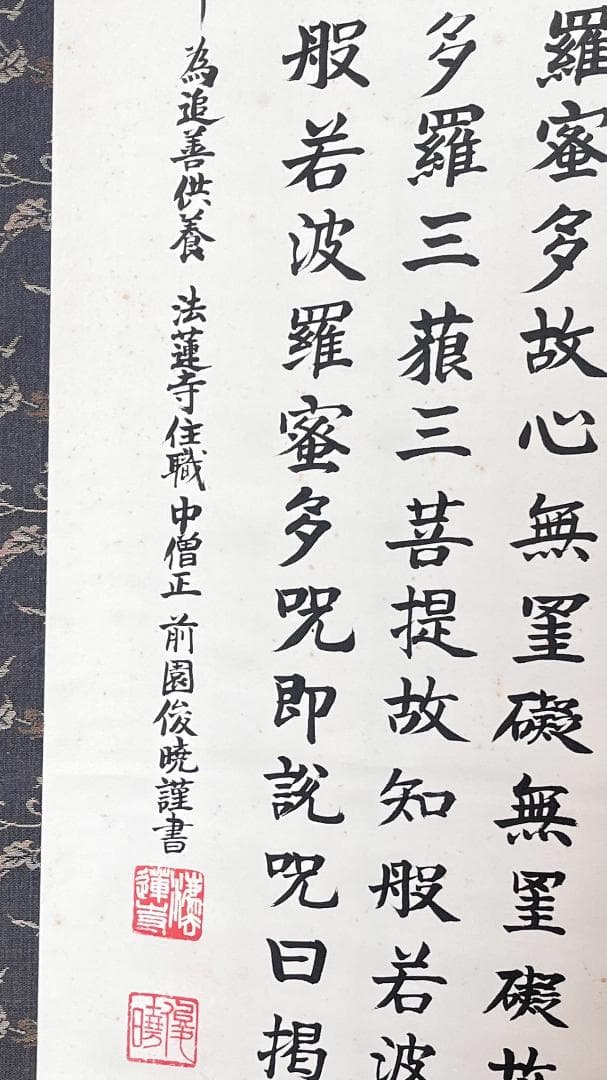 羅蜜多故心無罣礙無罣礙故
多羅三藐三菩提故知般若波
般若波羅蜜多呪即説呪曰掲
為追善供養 法蓮寺住職 中僧正 前園俊暁謹書
法蓮寺
俊曉